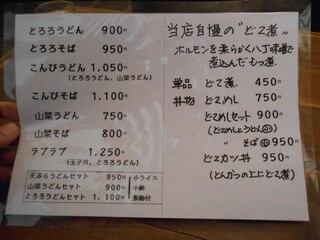 とろろうどん 900円
とろろそば 950円
こんぴうどん 1.050円
(とろろうどん、山菜うどん)
こんぴそば 1.100円
山菜うどん 750円
山菜そば 800円
ラブラブ 1.250円
(玉子丼、とろろうどん)
天ぷらうどんセット 950円
山菜うどんセット 900円
とろろうどんセット 1.100円
小ライス
小鉢
果物付
当店自慢の"どて煮"
ホルモンを柔らかく八丁味噌で
煮込んだもつ煮。
単品 どて煮. 450円
丼物 どてめし 750円
どてめしセット 900円
(どてめしとうどん㊋)
〃 そば 950円
どてカツ丼 950円
(とんかつの上にどて煮)